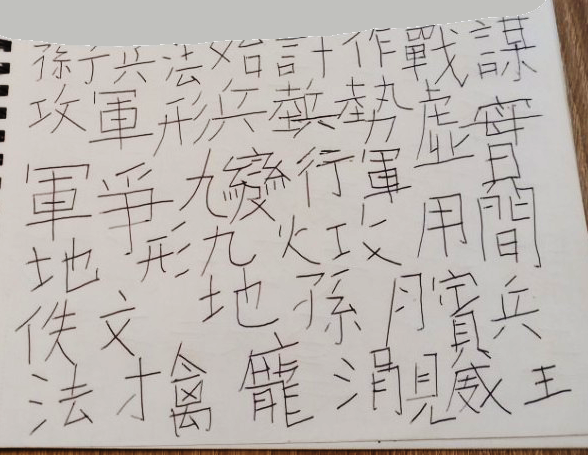 孫子兵法始計作戰謀
攻軍形兵勢虛實
軍爭九變行軍
地形九火攻用間
佚文地孫臏兵
法才擒龐涓見威王